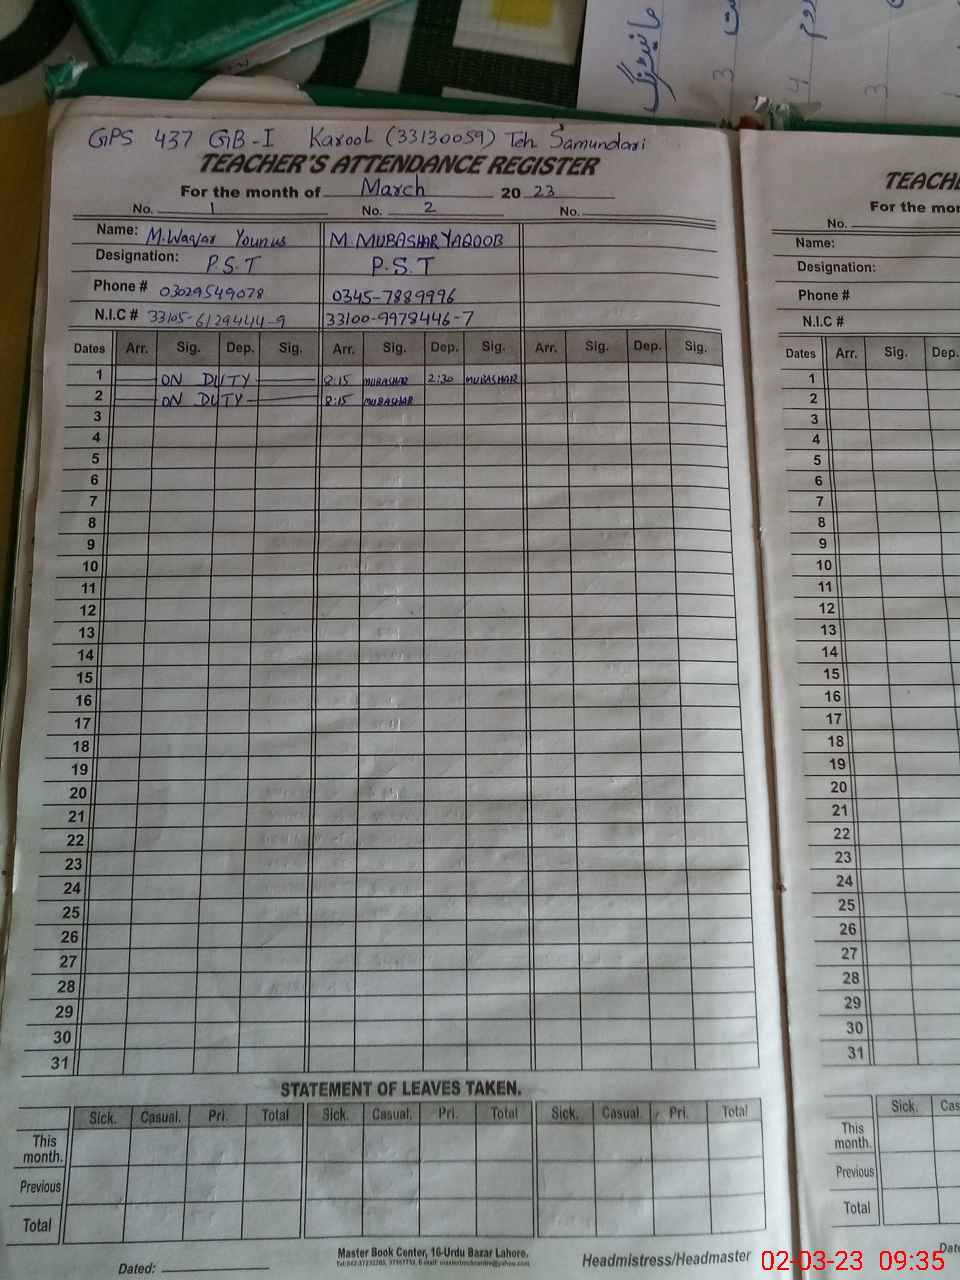 GPS 437 GB-I Karool (33130059) Teh Samundari
TEACHER'S ATTENDANCE REGISTER
For the month of March 2023
No. 1 No. 2 No.
Name: M.Waqar Younus M. MUBASHAR YAQOOB
Designation: P.S.T P.S.T
Phone # 03029549078 0345-7889996
N.I.C # 33105-6129444-9 33100-9978446-7
Dates Arr. Sig. Dep. Sig. Arr. Sig. Dep. Sig. Arr. Sig. Dep. Sig.
1 ON DUTY 8:15 MUBASHAR 2:30 MUBASHAR
2 ON DUTY 8:15 MUBASHAR
3
4
5
6
7
8
9
10
11
12
13
14
15
16
17
18
19
20
21
22
23
24
25
26
27
28
29
30
31
STATEMENT OF LEAVES TAKEN.
Sick. Casual. Pri. Total Sick. Casual. Pri. Total Sick. Casual. Pri. Total
This month.
Previous
Total
Master Book Center, 16-Urdu Bazar Lahore.
Dated: Headmistress/Headmaster
TEACHE
For the mon
No.
Name:
Designation:
Phone #
N.I.C #
Dates Arr. Sig. Dep.
1
2
3
4
5
6
7
8
9
10
11
12
13
14
15
16
17
18
19
20
21
22
23
24
25
26
27
28
29
30
31
Sick. Cas
This month.
Previous
Total
Date
02-03-23 09:35